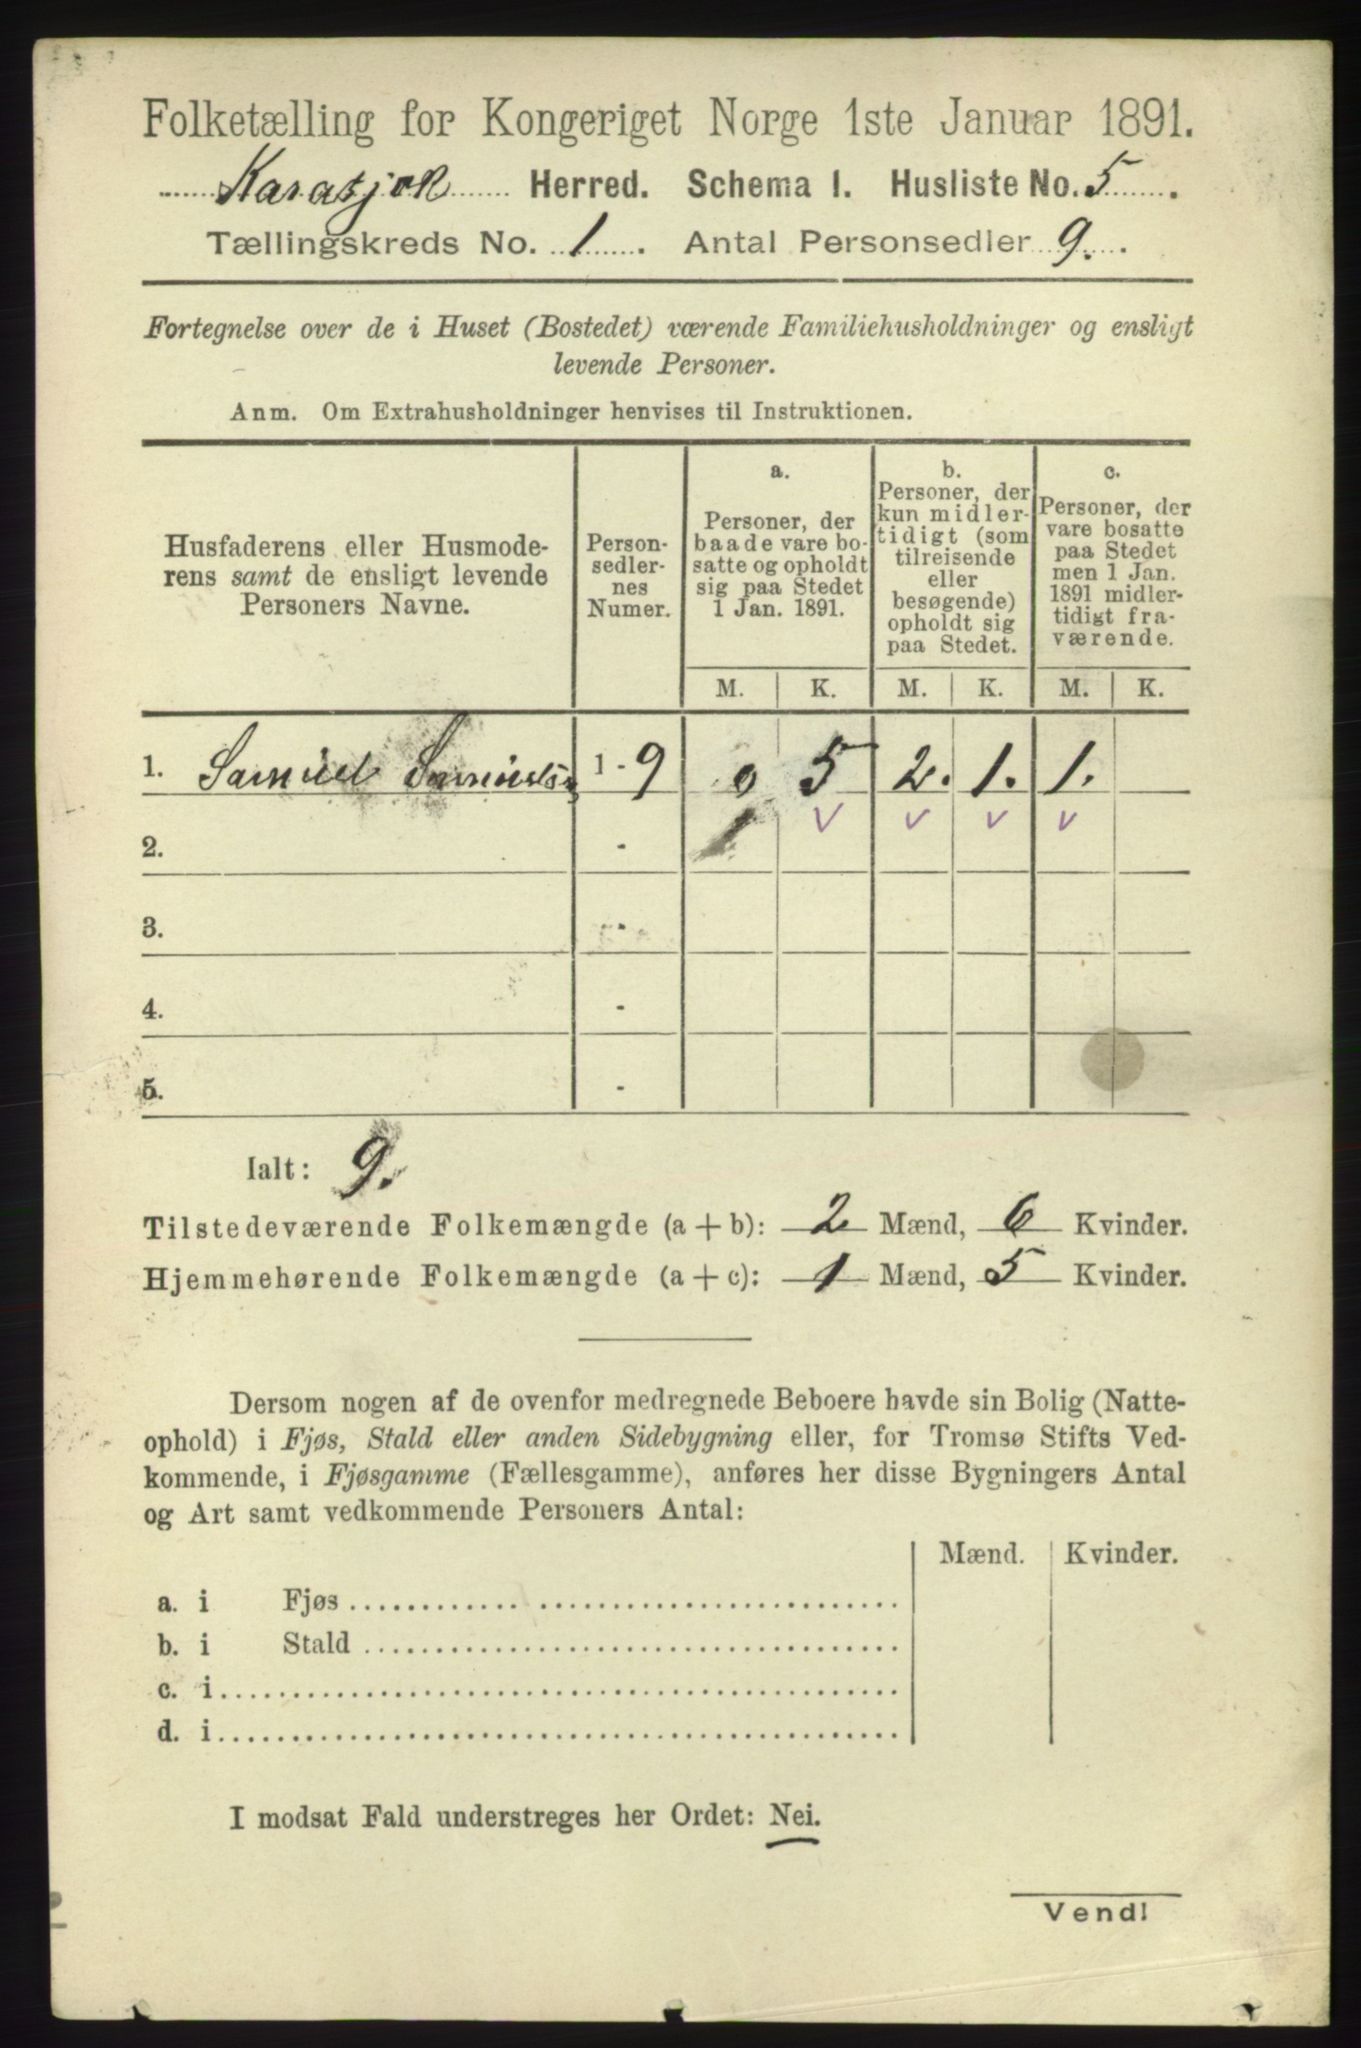 Folketælling for Kongeriget Norge 1ste Januar 1891.
Karasjok Herred. Schema I. Husliste No. 5.
Tællingskreds No. 1. Antal Personsedler 9.
Fortegnelse over de i Huset (Bostedet) værende Familiehusholdninger og ensligt
levende Personer.
Anm. Om Extrahusholdninger henvises til Instruktionen.
Husfaderens eller Husmode-
rens samt de ensligt levende
Personers Navne.
Person-
sedler-
nes
Numer.
a.
Personer, der
baade vare bo-
satte og opholdt
sig paa Stedet
1 Jan. 1891.
b.
Personer, der
kun midler-
tidigt (som
tilreisende
eller
besøgende)
opholdt sig
paa Stedet.
c.
Personer, der
vare bosatte
paa Stedet
men 1 Jan.
1891 midler-
tidigt fra-
værende.
M. K. M. K. M. K.
1. Samuel 1 - 9 0 5 2. 1. 1.
2. - 1 v v v v
3. -
4. -
5. -
Ialt: 9.
Tilstedeværende Folkemængde (a + b): 2 Mænd, 6 Kvinder.
Hjemmehørende Folkemængde (a + c): 1 Mænd, 5 Kvinder.
Dersom nogen af de ovenfor medregnede Beboere havde sin Bolig (Natte-
ophold) i Fjøs, Stald eller anden Sidebygning eller, for Tromsø Stifts Ved-
kommende, i Fjøsgamme (Fællesgamme), anføres her disse Bygningers Antal
og Art samt vedkommende Personers Antal:
Mænd. Kvinder.
a. i Fjøs
b. i Stald
c. i
d. i
I modsat Fald understreges her Ordet: Nei.
Vend!